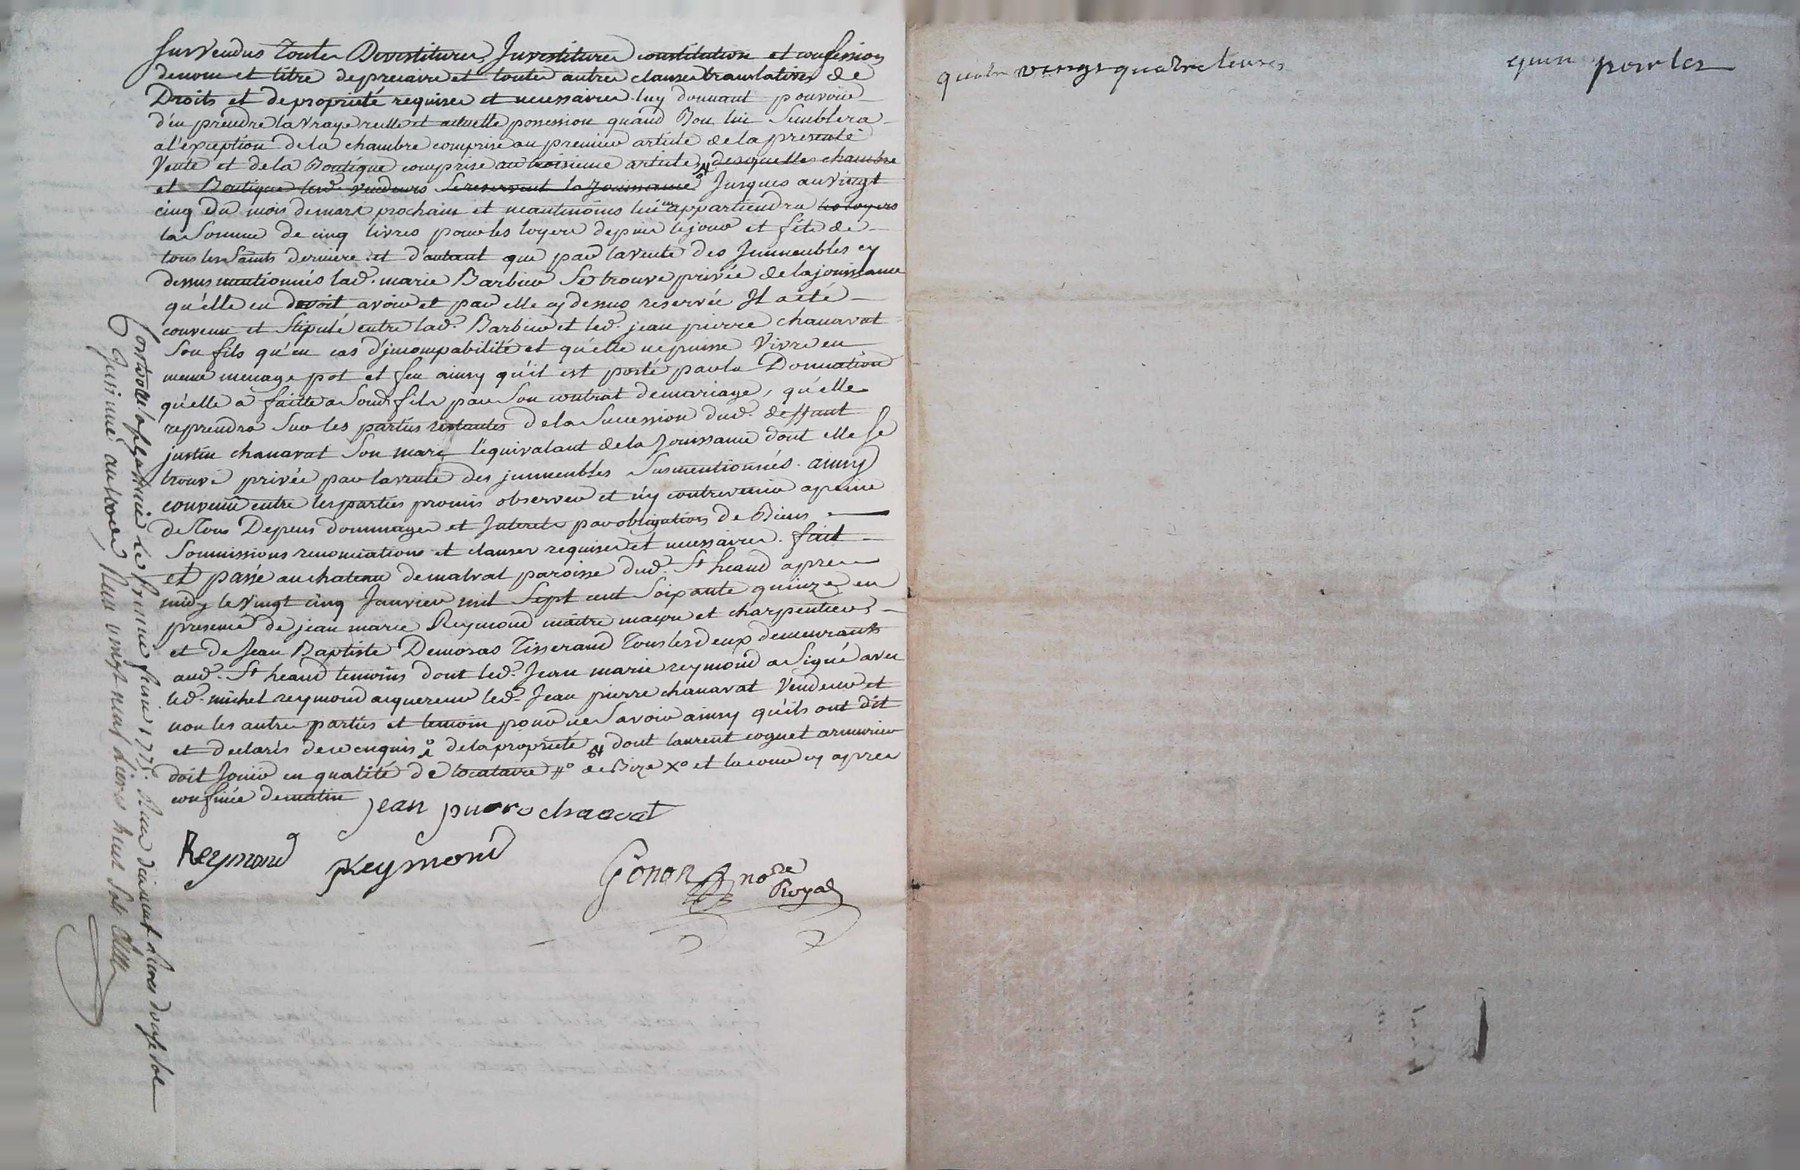 survendus toutes Devestitures, Investitures constitution et confession
de nom et titre de precaire et toute autres clauses translatives de
Droits et de propriété requises et necessaires luy donnant pouvoir
d'en prendre la vraye reelle et actuelle possession quand Bon lui Semblera
a l'exception de la chambre comprise au premier article de la presente
Vente et de la Boutique comprise au troisieme article, desquelles chambre
et Boutique led. vendeurs se reservent la Jouissance Jusques au vingt
cinq du mois de mars prochain et neantmoins lui appartiendra les loyers
la Somme de cinq livres pour les loyers depuis le jour et fête de
tous les Saints derniere; et d'autant que par la vente des Immeubles cy
dessus mentionnés lad. marie Barbier Se trouve privée de la jouissance
qu'elle en devoit avoir et par elle cy dessus reservée Il a été
convenu et Stipulé entre lad. Barbier et led. jean pierre chanavat
Son fils qu'en cas d'jncompabilité et qu'elle ne puisse Vivre en
meme menage pot et feu ainsy qu'il est porté par la Donnation
qu'elle a faitte a Sond. fils par Son contrat de mariage, qu'elle
reprendra Sur les parties restantes de la Succession dud. deffaunt
justin chanavat Son mary l'equivalant de la Jouissance dont elle Se
trouve privée par la vente des jmmeubles Susmentionnés. ainsy
convenu entre les parties promis observer et n'y contrevenir a peine
de Tous Depens dommages et Interets par obligation de Biens
Soumissions renonciations et clauses requises et necessaires. fait
et passé au chateau de malval paroisse dud. St heand apres
midy le vingt cinq Janvier mil Sept cent Soixante quinze en
presence de jean marie Reymond maitre maçon et charpentier,
et de Jean Baptiste Demoras Tisserand Tous les deux demeurants
aud. St heand temoins dont led. Jean marie reymond a Signé avec
led. michel reymond acquereur led. Jean pierre chanavat Vendeur et
non les autre parties et temoin pour ne Savoir ainsy qu'ils ont dit
et declarés de ce enquis de la propriété dont laurent coquet armurier
doit Jouir en qualité de locataire de Bize et la cour cy apres
confinée de matin
jean pierre chanavat
Reymond
Reymond
Gonon
nore
Royal
Controllé a le fevrier 1775. Reçu livres sols
Insinué au Reçu vingt neuf livres huit sols
quatre vingt quatre livres
pour les